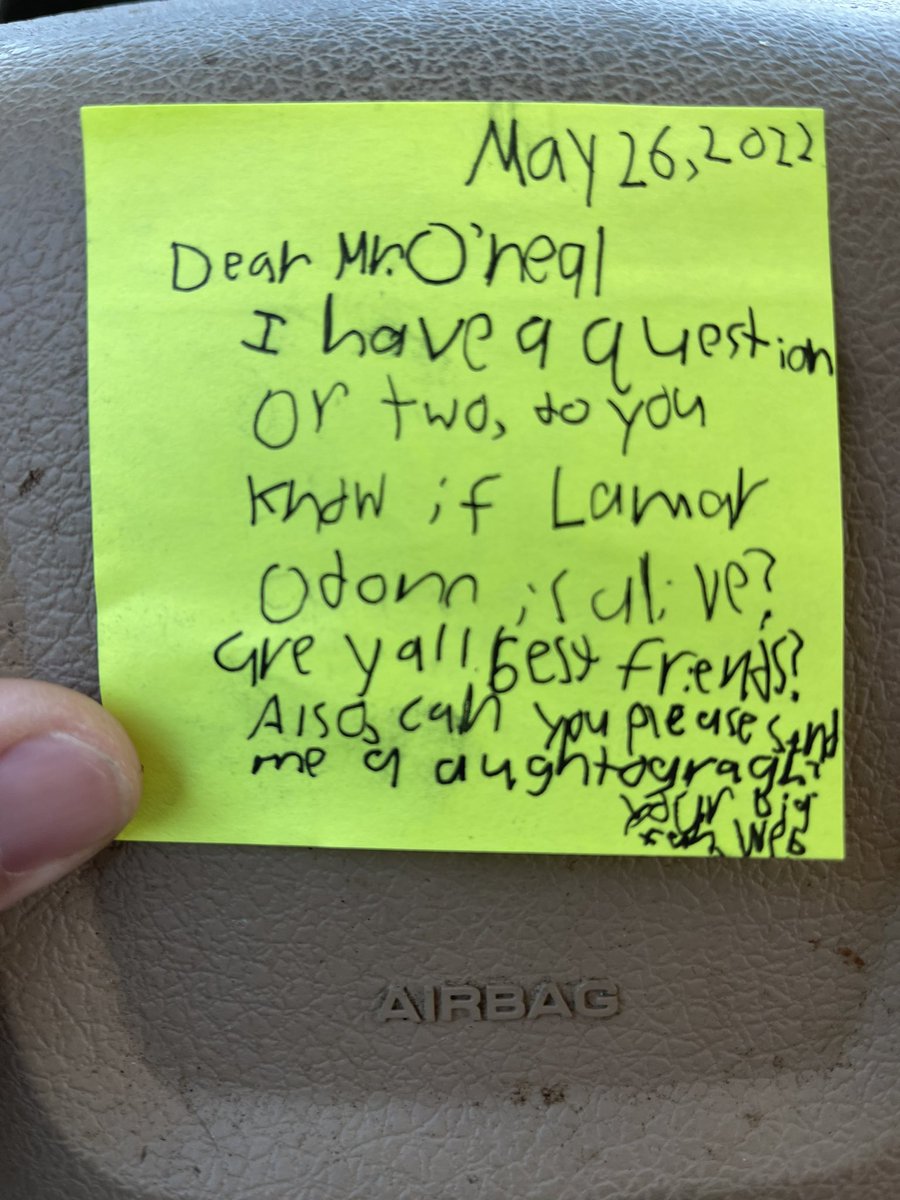 May 26, 2022
Dear Mr. O'neal
I have a question
or two, do you
know if Lamar
Odom is alive?
are yall best friends?
Also, can you please send
me a aughtograph?
your big
fan, Web
AIRBAG